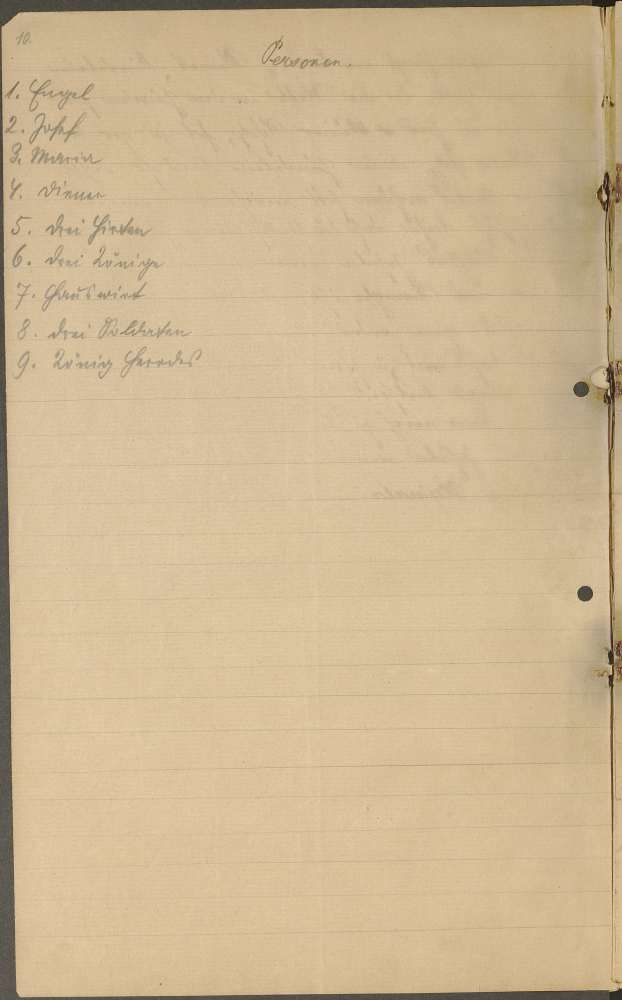 10.
Personen.
1. Engel
2. Josef
3. Maria
4. Diener
5. drei Hirten
6. drei Könige
7. Hauswirt
8. drei Soldaten
9. König Herodes